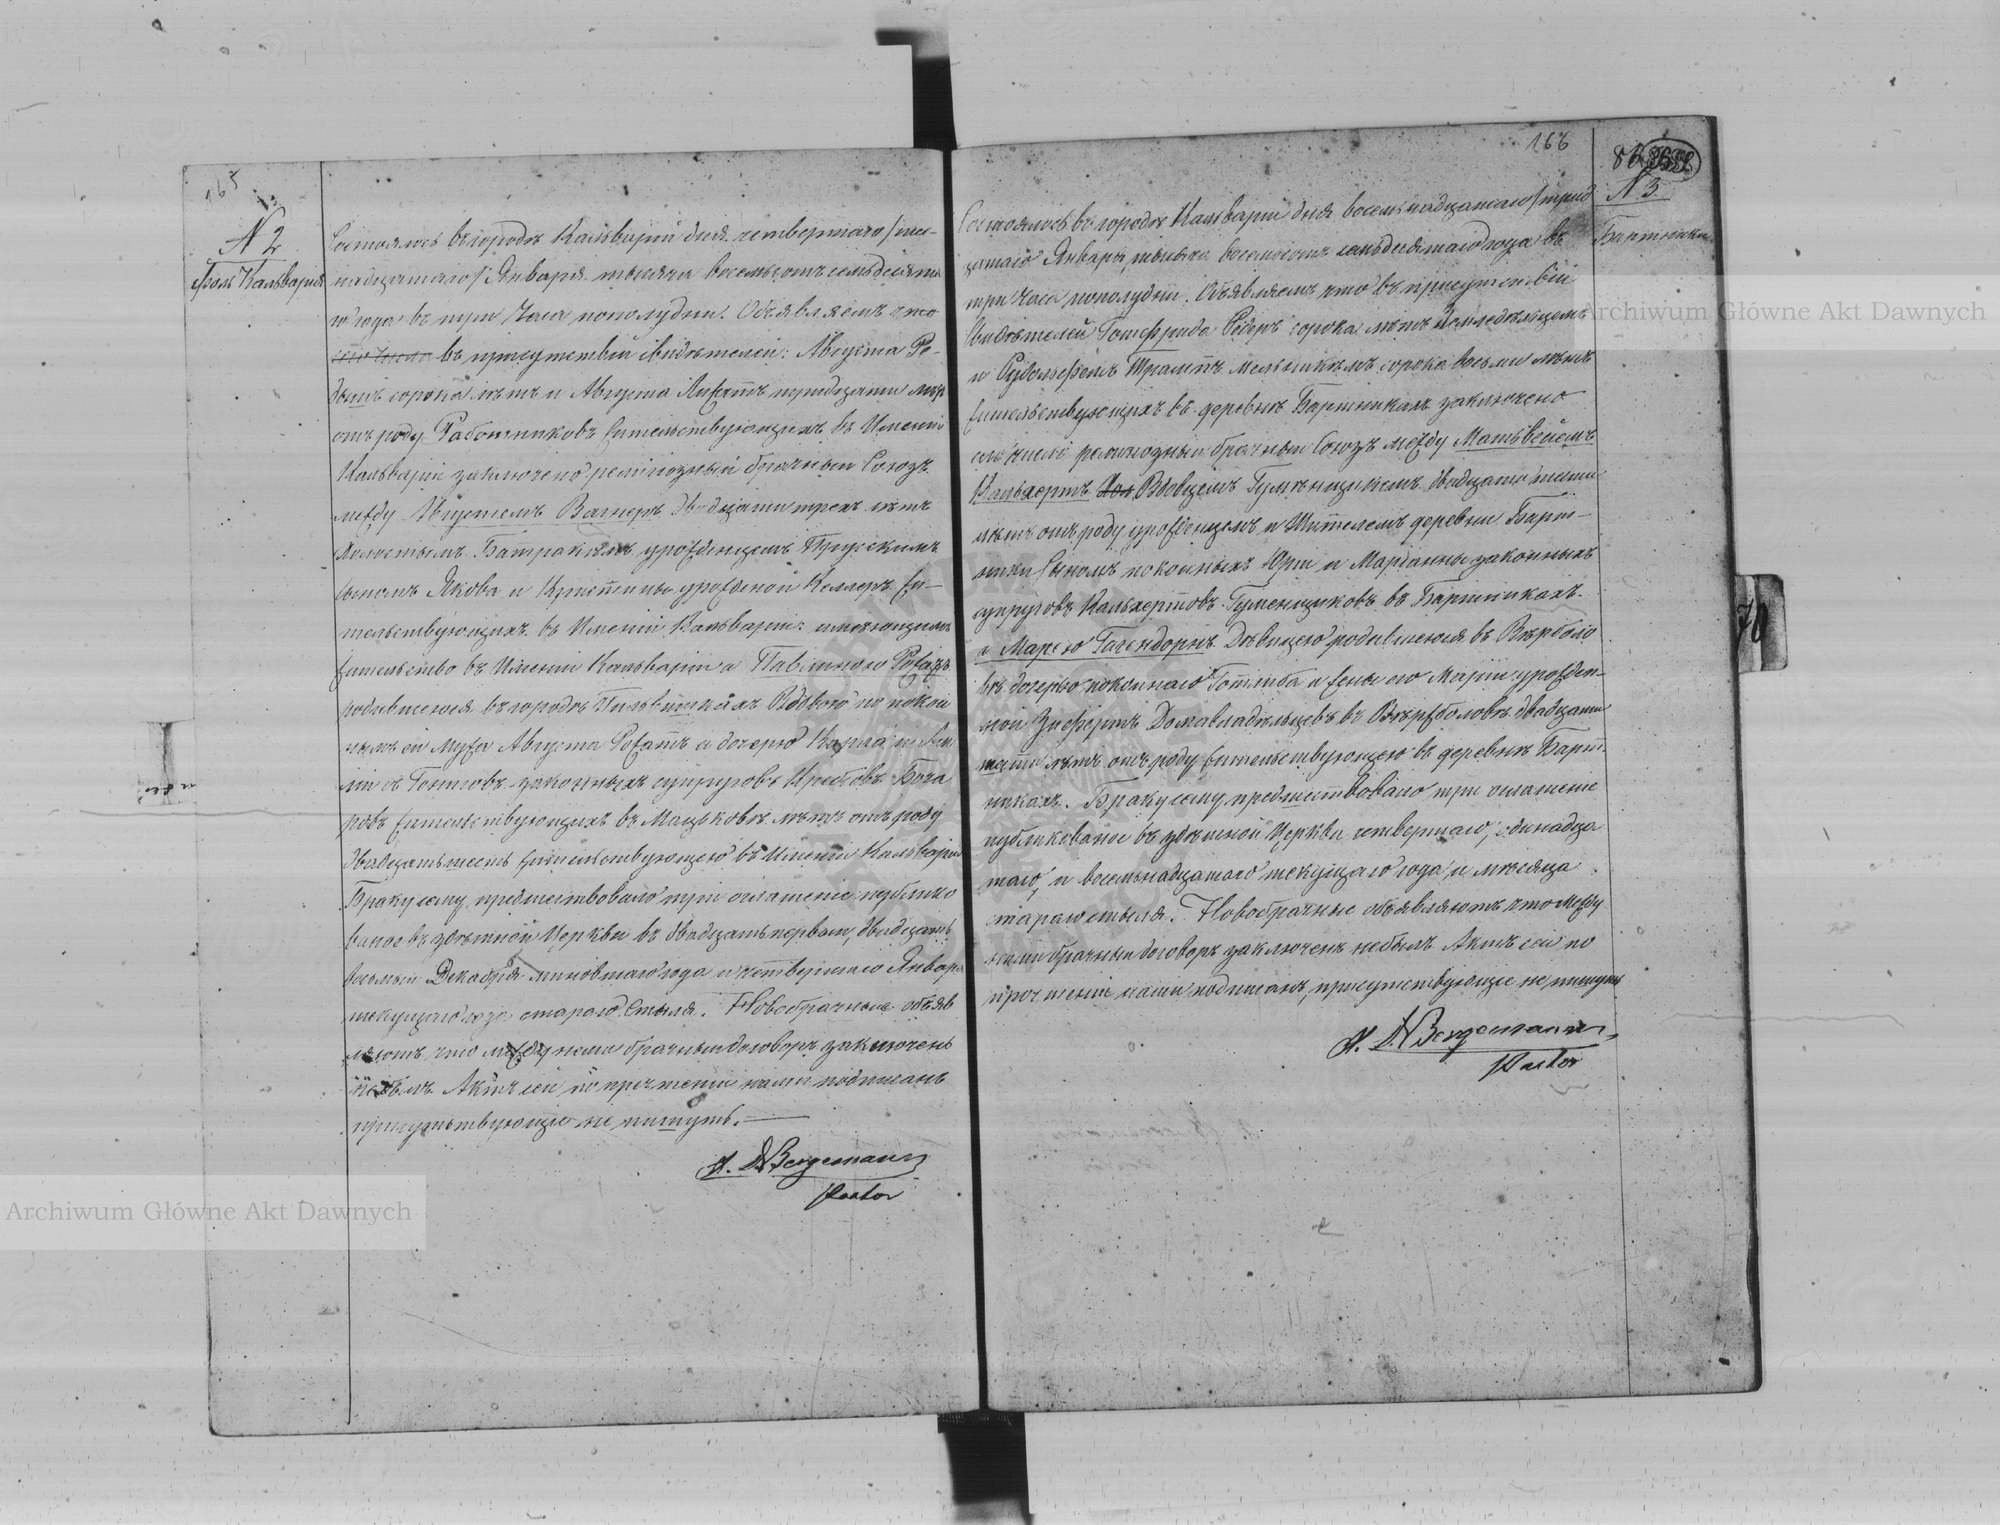 165
N 2
Фоль. Кальвария
Состоялось въ городѣ Кальваріи дня четвертаго /шес-
надцатаго/ Января тысяча восемьсотъ семьдесята
го года въ три Часа пополудни. Объявляемъ что
въ присутствіи свидѣтелей: Августа Ре-
сорока лѣтъ и Августа тридцати лѣтъ
отъ роду Работниковъ жительствующихъ въ Имѣніи
Кальваріи заключено религіозный брачный Союзъ
между Августомъ Вагнеръ двадцати трехъ лѣтъ
Холостымъ Батракомъ урожденцемъ Прусскимъ
сыномъ Якова и Кристины урожденой Келлеръ жи-
тельствующихъ въ Имѣніи Кальваріи: имеющимъ
жительство въ Имѣніи Кальваріи и Павлиною Рогатъ
родившеюся въ городѣ Пильвишкахъ Вдовою по покой
нымъ ей мужа Августа Рогатъ а дочерью Карла и
законныхъ супруговъ
ровъ жительствующихъ въ Мацьковѣ лѣтъ отъ роду
двадцать шесть жительствующею въ Имѣніи Кальваріи
Браку сему предшествовало три оглашеніе публико
ваное въ здѣшной Церкви въ двадцать первый, двадцать
восьмый Декабря миновшаго года и четвертаго Января
текущаго года стараго Стыля. Новобрачные объяв
ляютъ что между ними брачный договоръ заключенъ
небылъ. Актъ сей по прочтеніи нами подписанъ
присутствующіе не пишутъ.
H. D. Bergemann
Pastor
166
N 3
Бартники
Состоялось въ городѣ Кальваріи дня восемьнадцатаго /трид
цатаго Января тысяча восемьсотъ семьдесятаго года въ
три часа пополудни. Объявляемъ что въ присутствіи
Свидѣтелей Готфрида Редеръ сорока лѣтъ Земледѣльцемъ
и Рудольфомъ Трампъ Мельникомъ сорока восьми лѣтъ
жительствующихъ въ деревнѣ Бартникахъ заключено
религіозный брачный Союзъ между Матвѣемъ
Кальхертъ Хол Вдовцемъ Гуменщикомъ двадцати шести
лѣтъ отъ роду урожденцемъ и Жителемъ деревни Барт-
ники Сыномъ покойныхъ Юрія и Маріанны законныхъ
супруговъ Кальхертовъ Гуменщиковъ въ Бартникахъ.
а Марею Гагендорнъ Дѣвицею родившеюся въ Вержболо
вѣ дочерью покойнаго Готлиба и жены его Маріи урожден-
ной Домавладѣльцевъ въ Вержболовѣ двадцати
лѣтъ отъ роду жительствующею въ деревнѣ Барт-
никахъ. Браку сему предшествовало три оглашеніе
публикованое въ здѣшной Церкви четвертаго, одинадца
таго, и восемьнадцатаго текущаго года и мѣсяца
стараго стыля. Новобрачные объявляютъ что между
ними брачный договоръ заключенъ небылъ. Актъ сей по
прочтеніи нами подписанъ, присутствующіе не пишутъ
H. D. Bergemann
Pastor
70
Archiwum Główne Akt Dawnych
Archiwum Główne Akt Dawnych